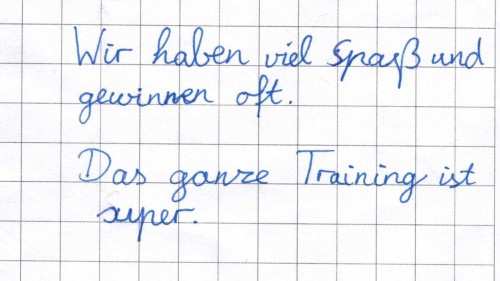 Wir haben viel Spaß und
gewinnen oft.
Das ganze Training ist
super.